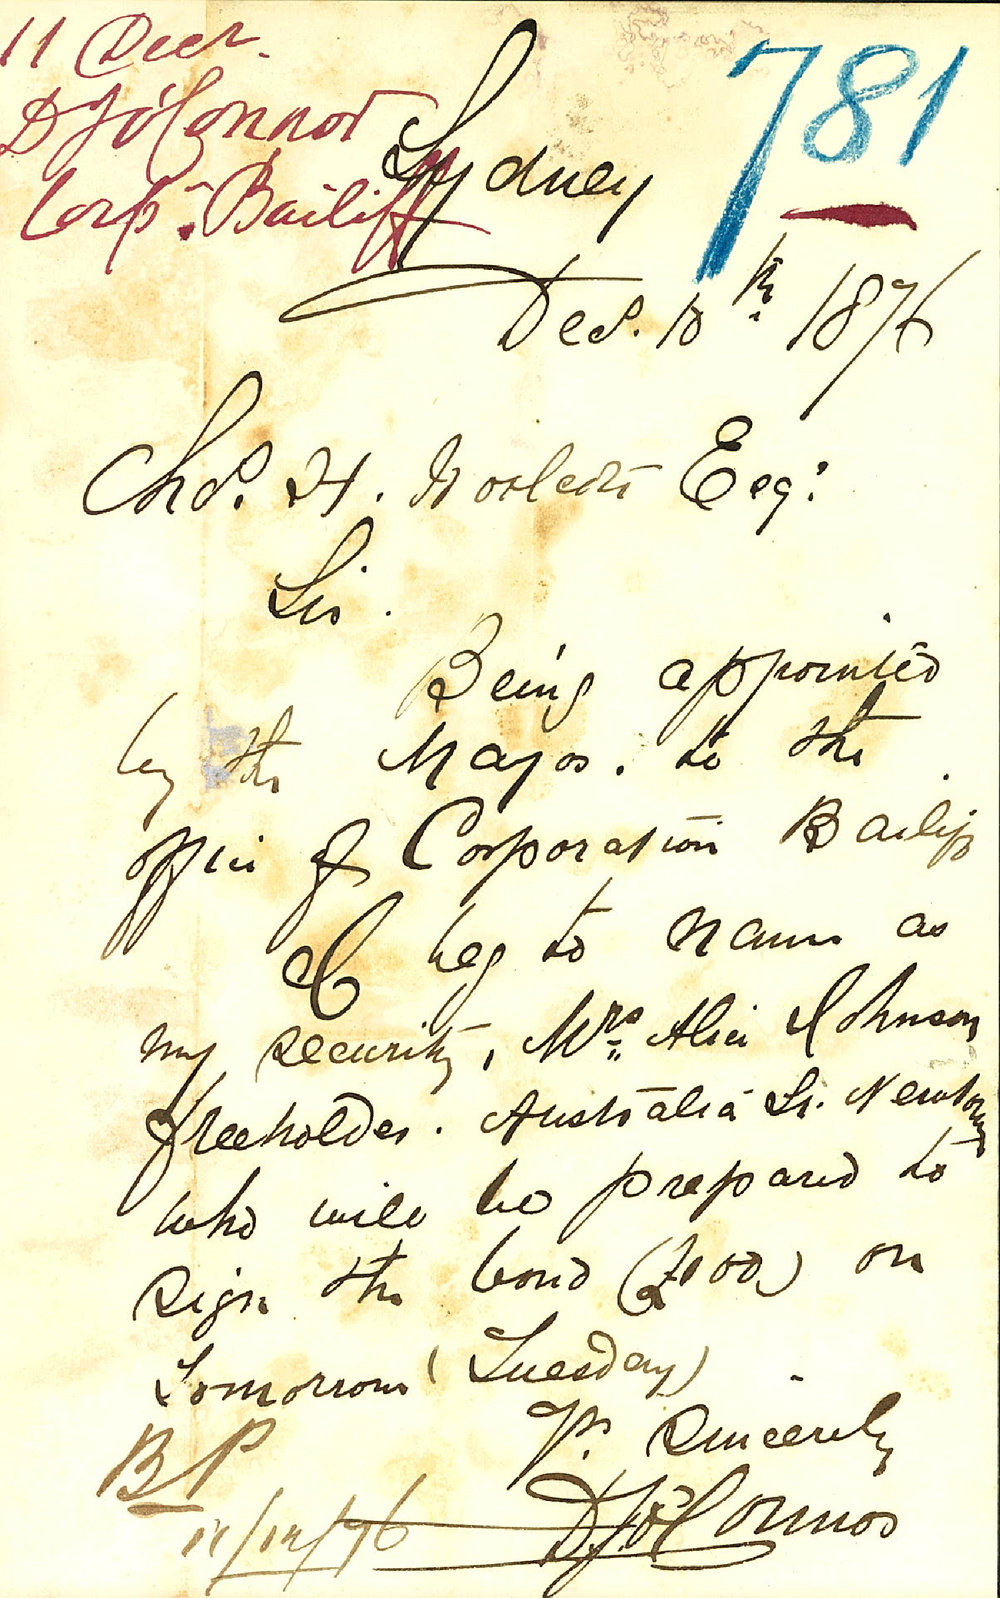 11 Decr.
D J O'Connor
Corpn. Bailiff
781
Sydney
Dec. 10th 1876
Chs. H. Woolcott Esq:
Sir.
Being appointed
by the Mayor. to the
office of Corporation Bailiff
I beg to name as
my security, Mrs. Alice Johnson
freeholder. Australia St. Newtown
who will be prepared to
sign the bond (£100) on
tomorrow (Tuesday)
Yrs. Sincerely
D J O'Connor
BP
11/12/76